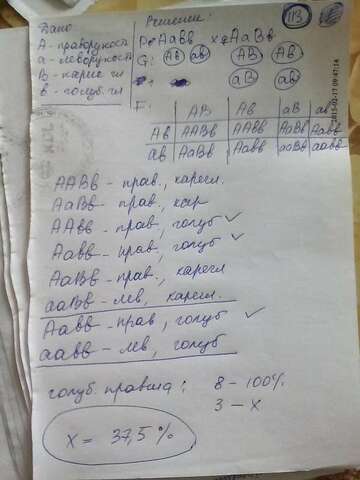 Дано
Решение:
113
А - праворукость
а - леворукость
В - карие гл
в - голуб. гл
P: ♀ Аавв х ♂ АаВв
G: Ав ав АВ Ав
аВ ав
F:
АВ Ав аВ ав
Ав ААВв ААвв АаВв Аавв
ав АаВв Аавв ааВв аавв
ААВв - прав., карегл.
АаВв - прав., кар
ААвв - прав., голуб ✓
Аавв - прав., голуб ✓
АаВв - прав., карегл
ааВв - лев, карегл.
Аавв - прав, голуб ✓
аавв - лев, голуб
голуб. правша: 8 - 100%
3 - х
х = 37,5%